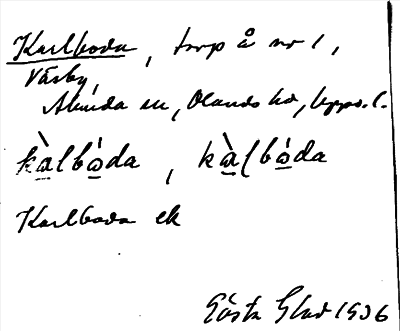 Karlboda, torp å nr 1,
Väsby,
Alunda sn, Olands hd, Upps. l.
kàlbóda, kàlbóda
Karlboda ek
Gösta Glad 1936